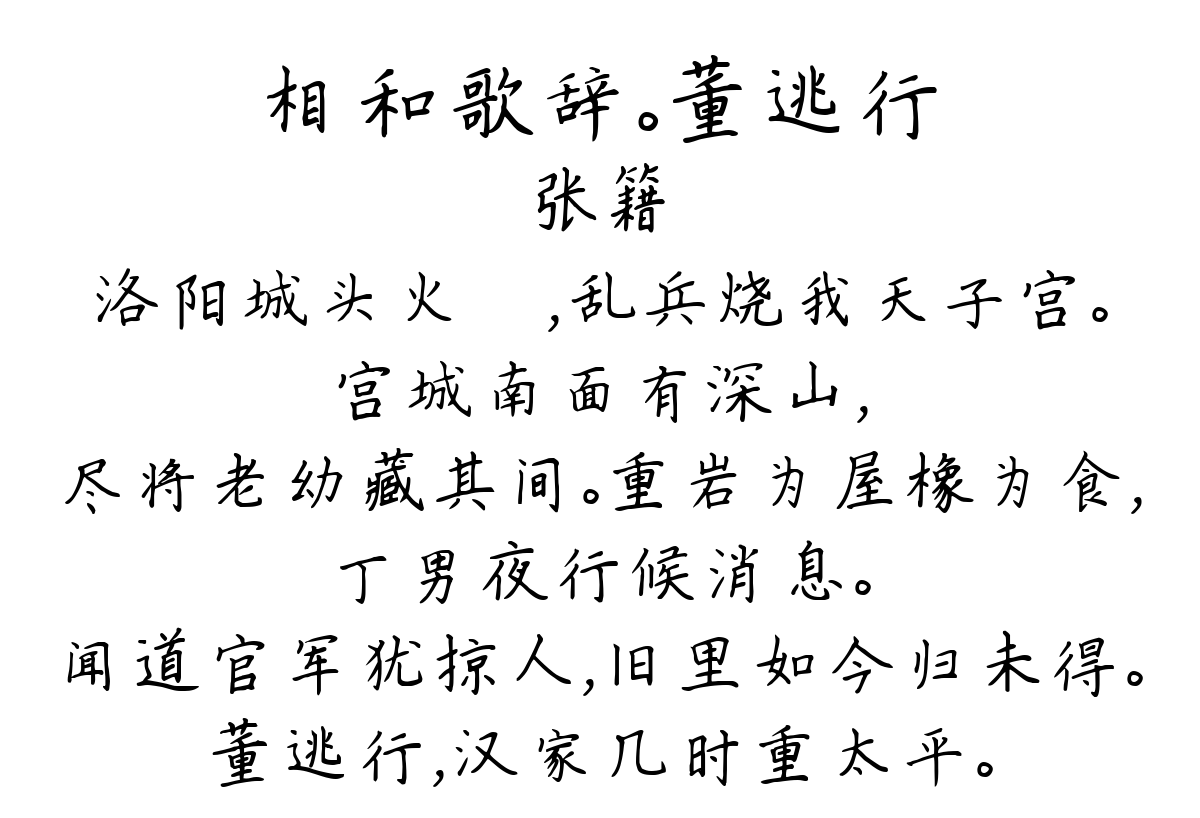 相和歌辞。董逃行
张籍
洛阳城头火 ,乱兵烧我天子宫。
宫城南面有深山,
尽将老幼藏其间。重岩为屋橡为食,
丁男夜行候消息。
闻道官军犹掠人,旧里如今归未得。
董逃行,汉家几时重太平。